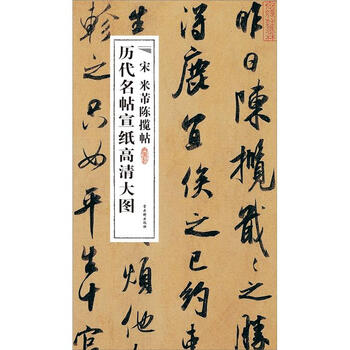 昨日陳攬戢戢之勝
得鹿宜俟之已約束
宋 米芾陈揽帖
历代名帖宣纸高清大图
煩他
軫之只如平生十官